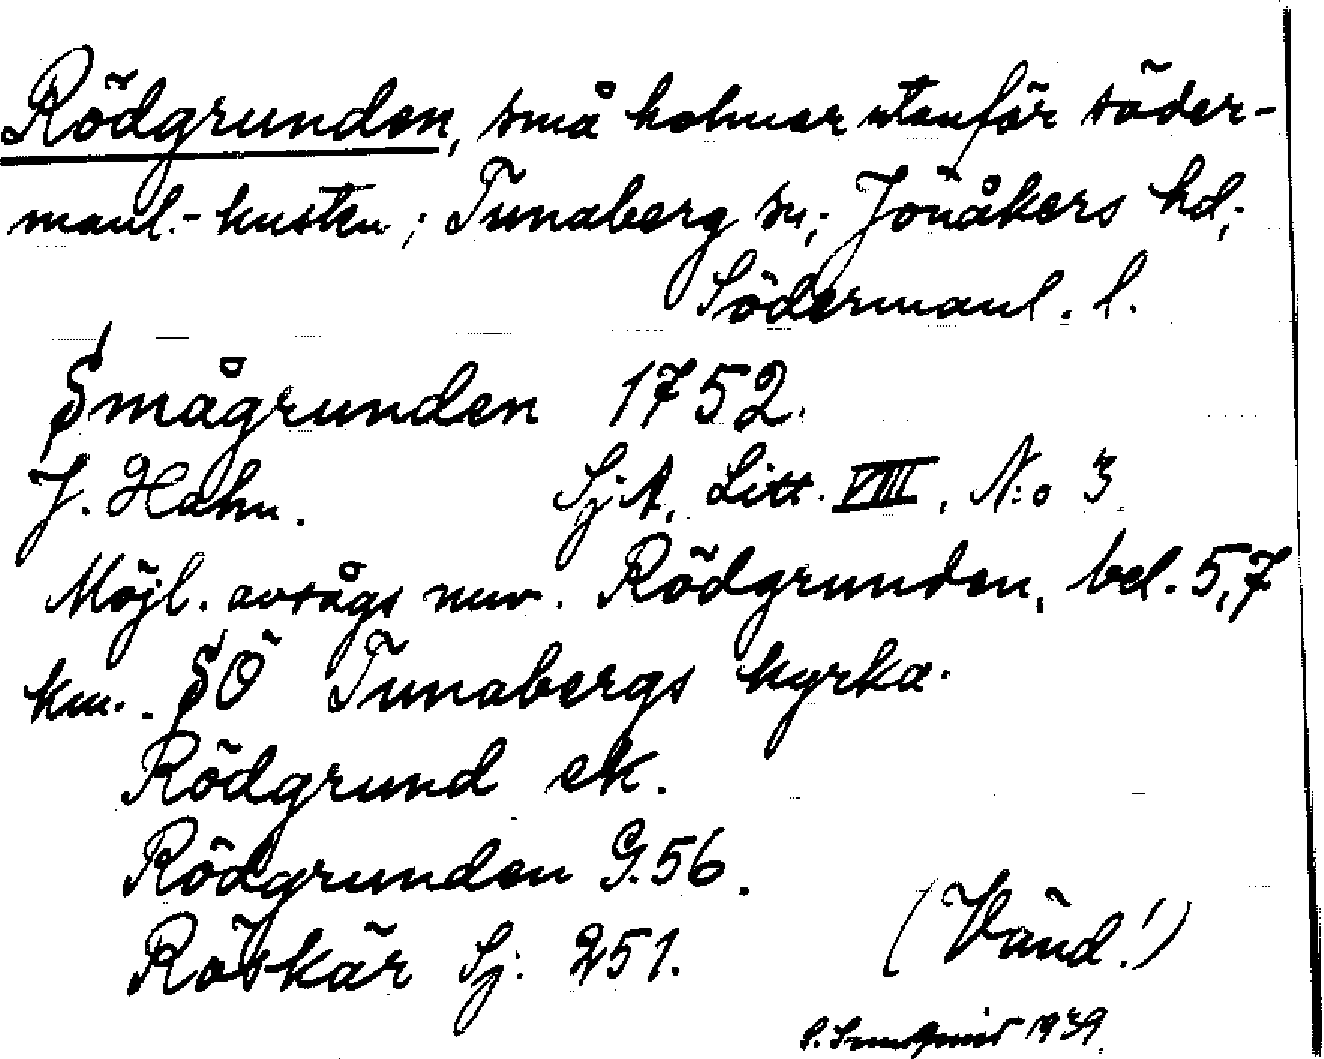 Rödgrunden, små holmar utanför söder-
manl.-kusten; Tunaberg sn; Jönåkers hd;
Södermanl. l.
Smågrunden 1752.
J. Hahn. SjA, Litt. VIII, N:o 3
Möjl. avsågs nuv. Rödgrunden, bel. 5,7
km. SÖ Tunabergs kyrka.
Rödgrund ek.
Rödgrunden G.56.
Röskär Sj. 251.
(Vänd!)
1939